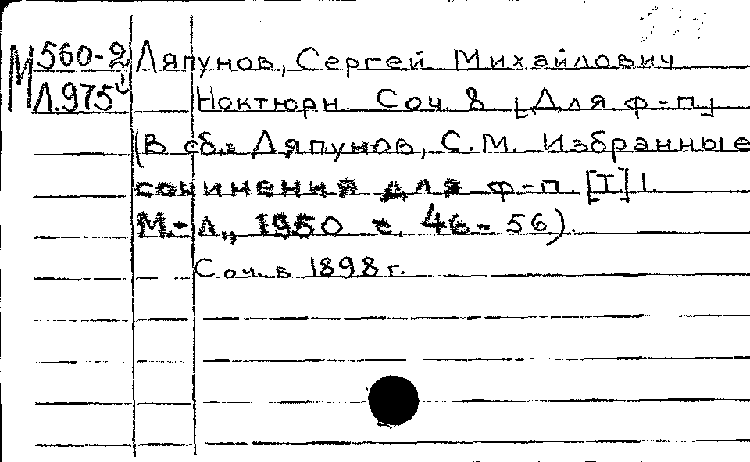 М 560-2 Ляпунов, Сергей Михайлович
Л.975 Ноктюрн Соч 8 [Для ф-п]
(В сб.: Ляпунов, С.М. Избранные
сочинения для ф-п [I] 1.
М.-Л., 1950 с. 46-56).
Соч. в 1898 г.